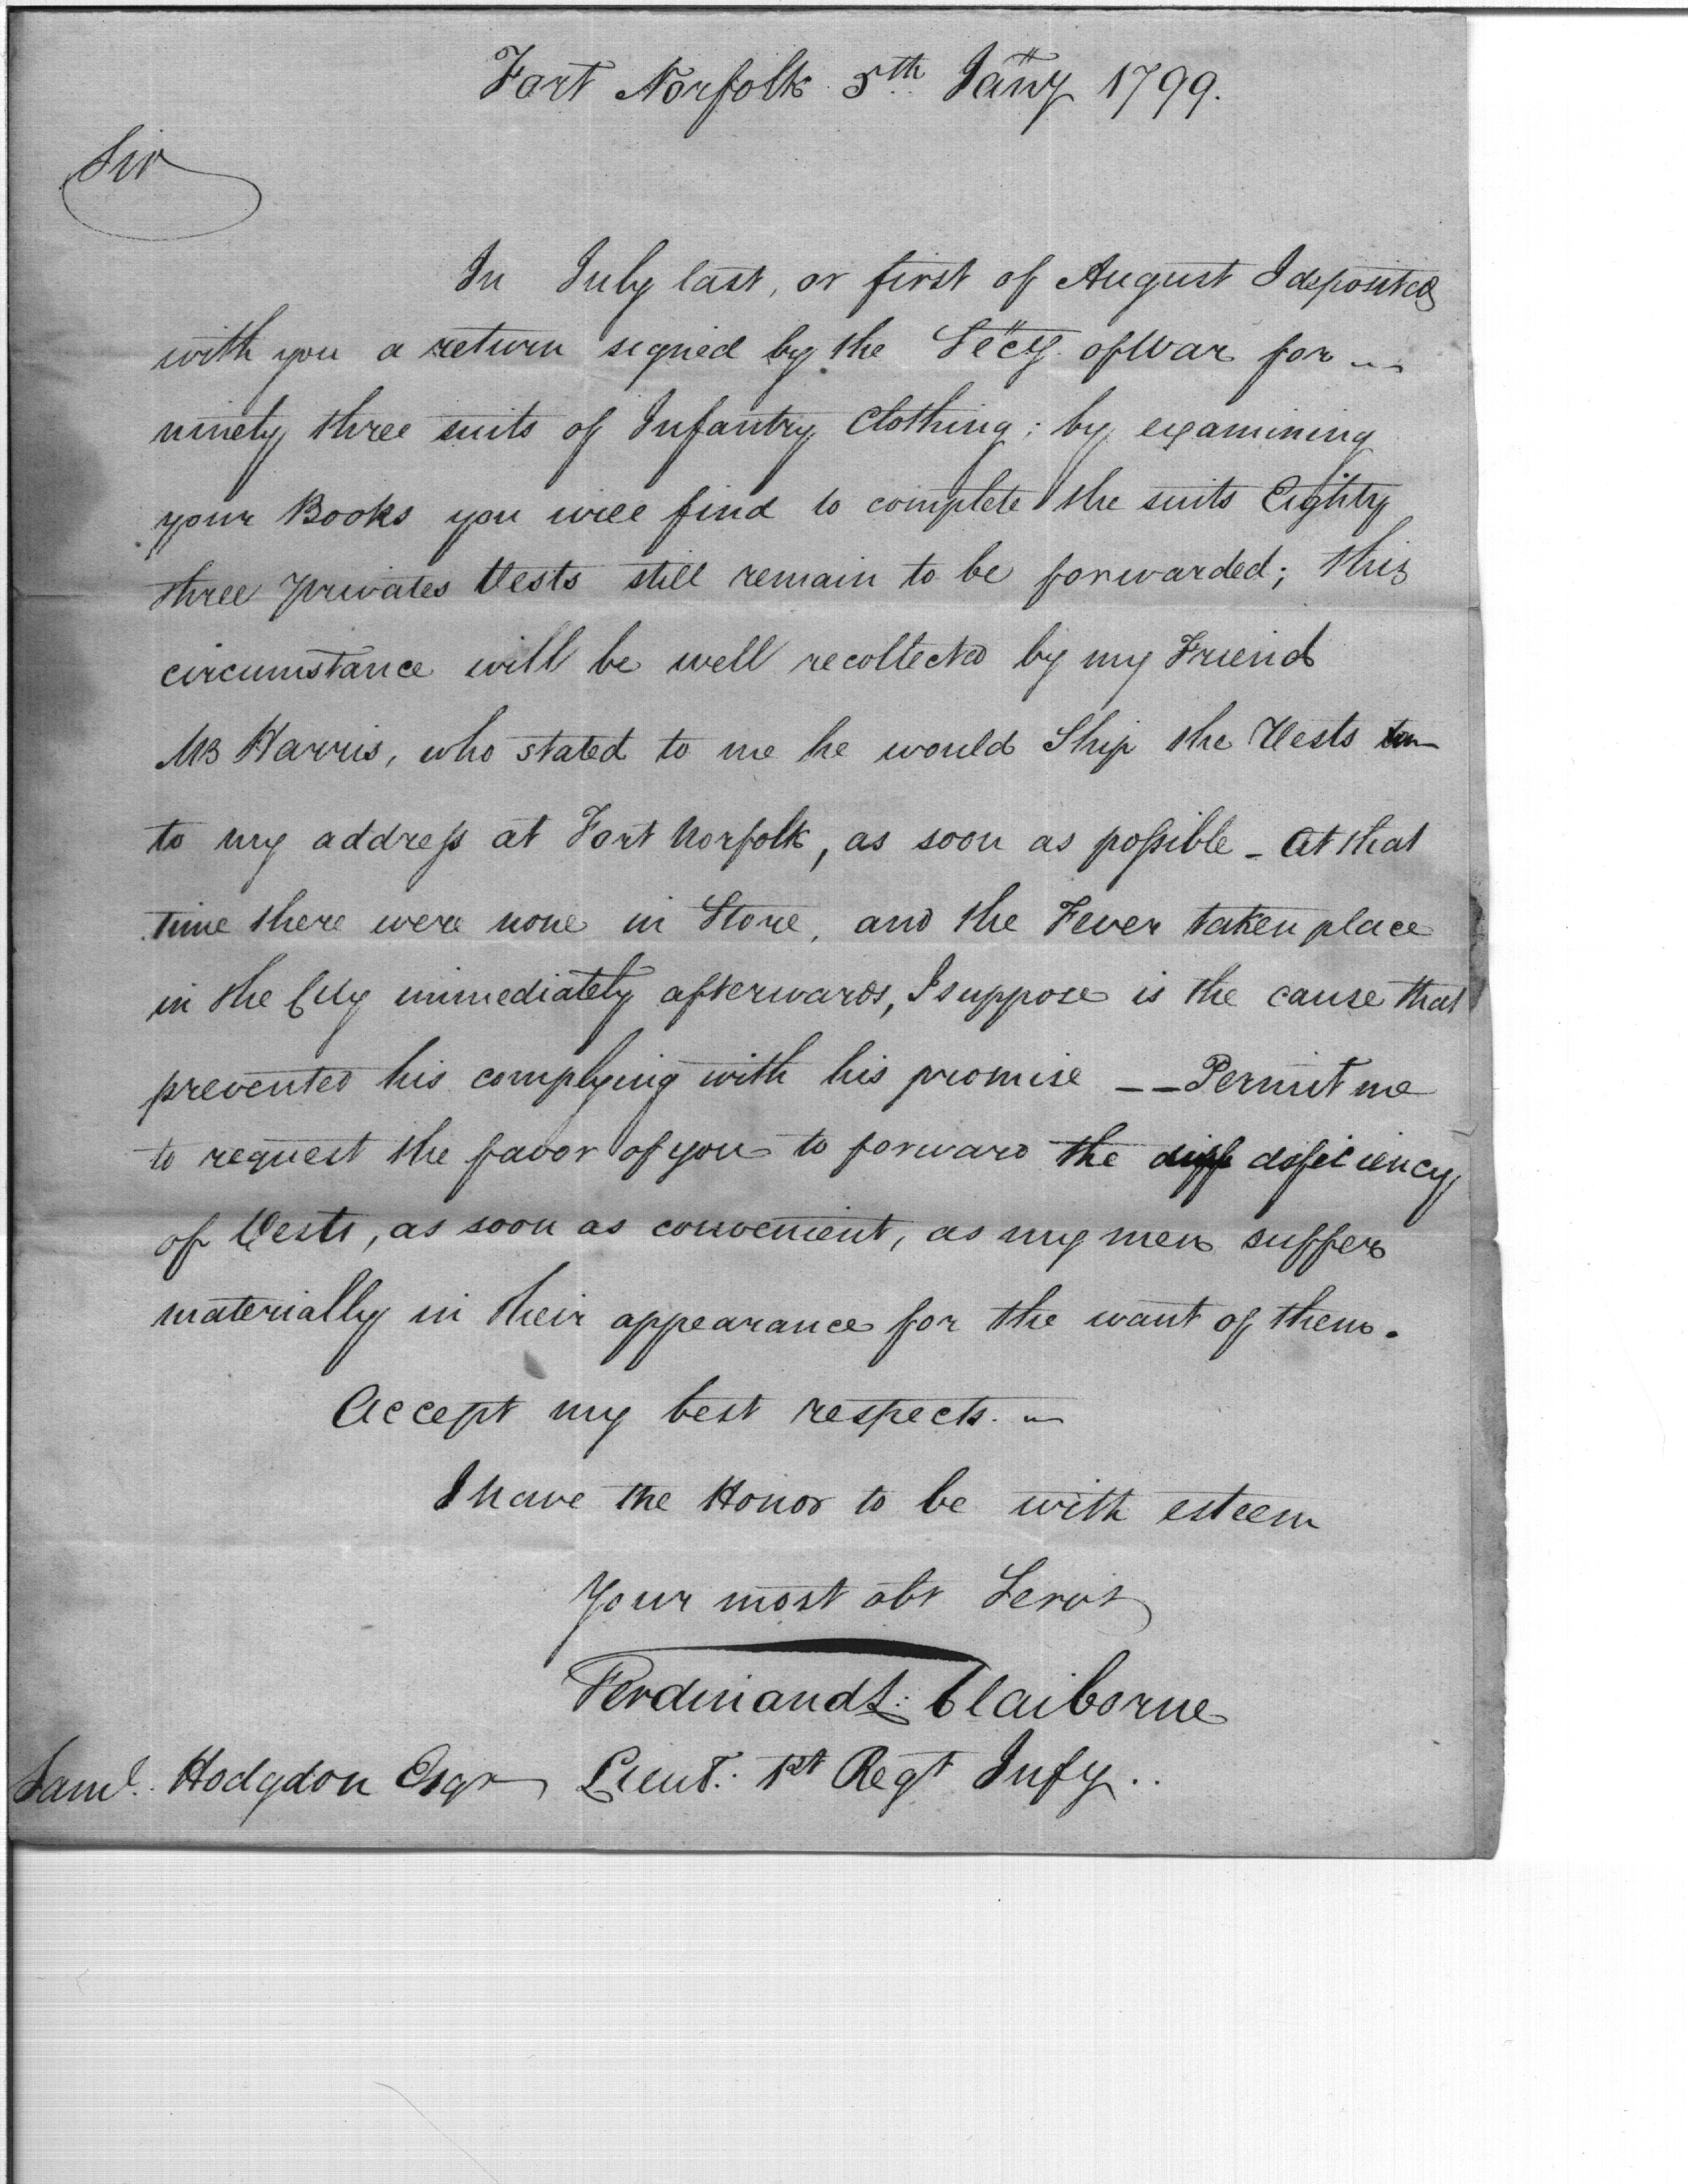 Fort Norfolk 5th Jany 1799.
Sir
In July last, or first of August I deposited
with you a return signed by the Secy. of War for
ninety three suits of Infantry Clothing; by examining
your Books you will find to complete the suits Eighty
three privates Vests still remain to be forwarded; this
circumstance will be well recollected by my Friend
Mr Harris, who stated to me he would Ship the Vests
to my address at Fort Norfolk, as soon as possible - At that
time there were none in Store, and the Fever taken place
in the City immediately afterwards, I suppose is the cause that
prevented his complying with his promise -- Permit me
to request the favor of you to forward the diff deficiency
of Vests, as soon as convenient, as my men suffer
materially in their appearance for the want of them.
Accept my best respects.
I have the Honor to be with esteem
Your most obt Servt
Ferdinand L. Claiborne
Saml. Hodgdon Esqr Lieut. 1st Regt Infy..